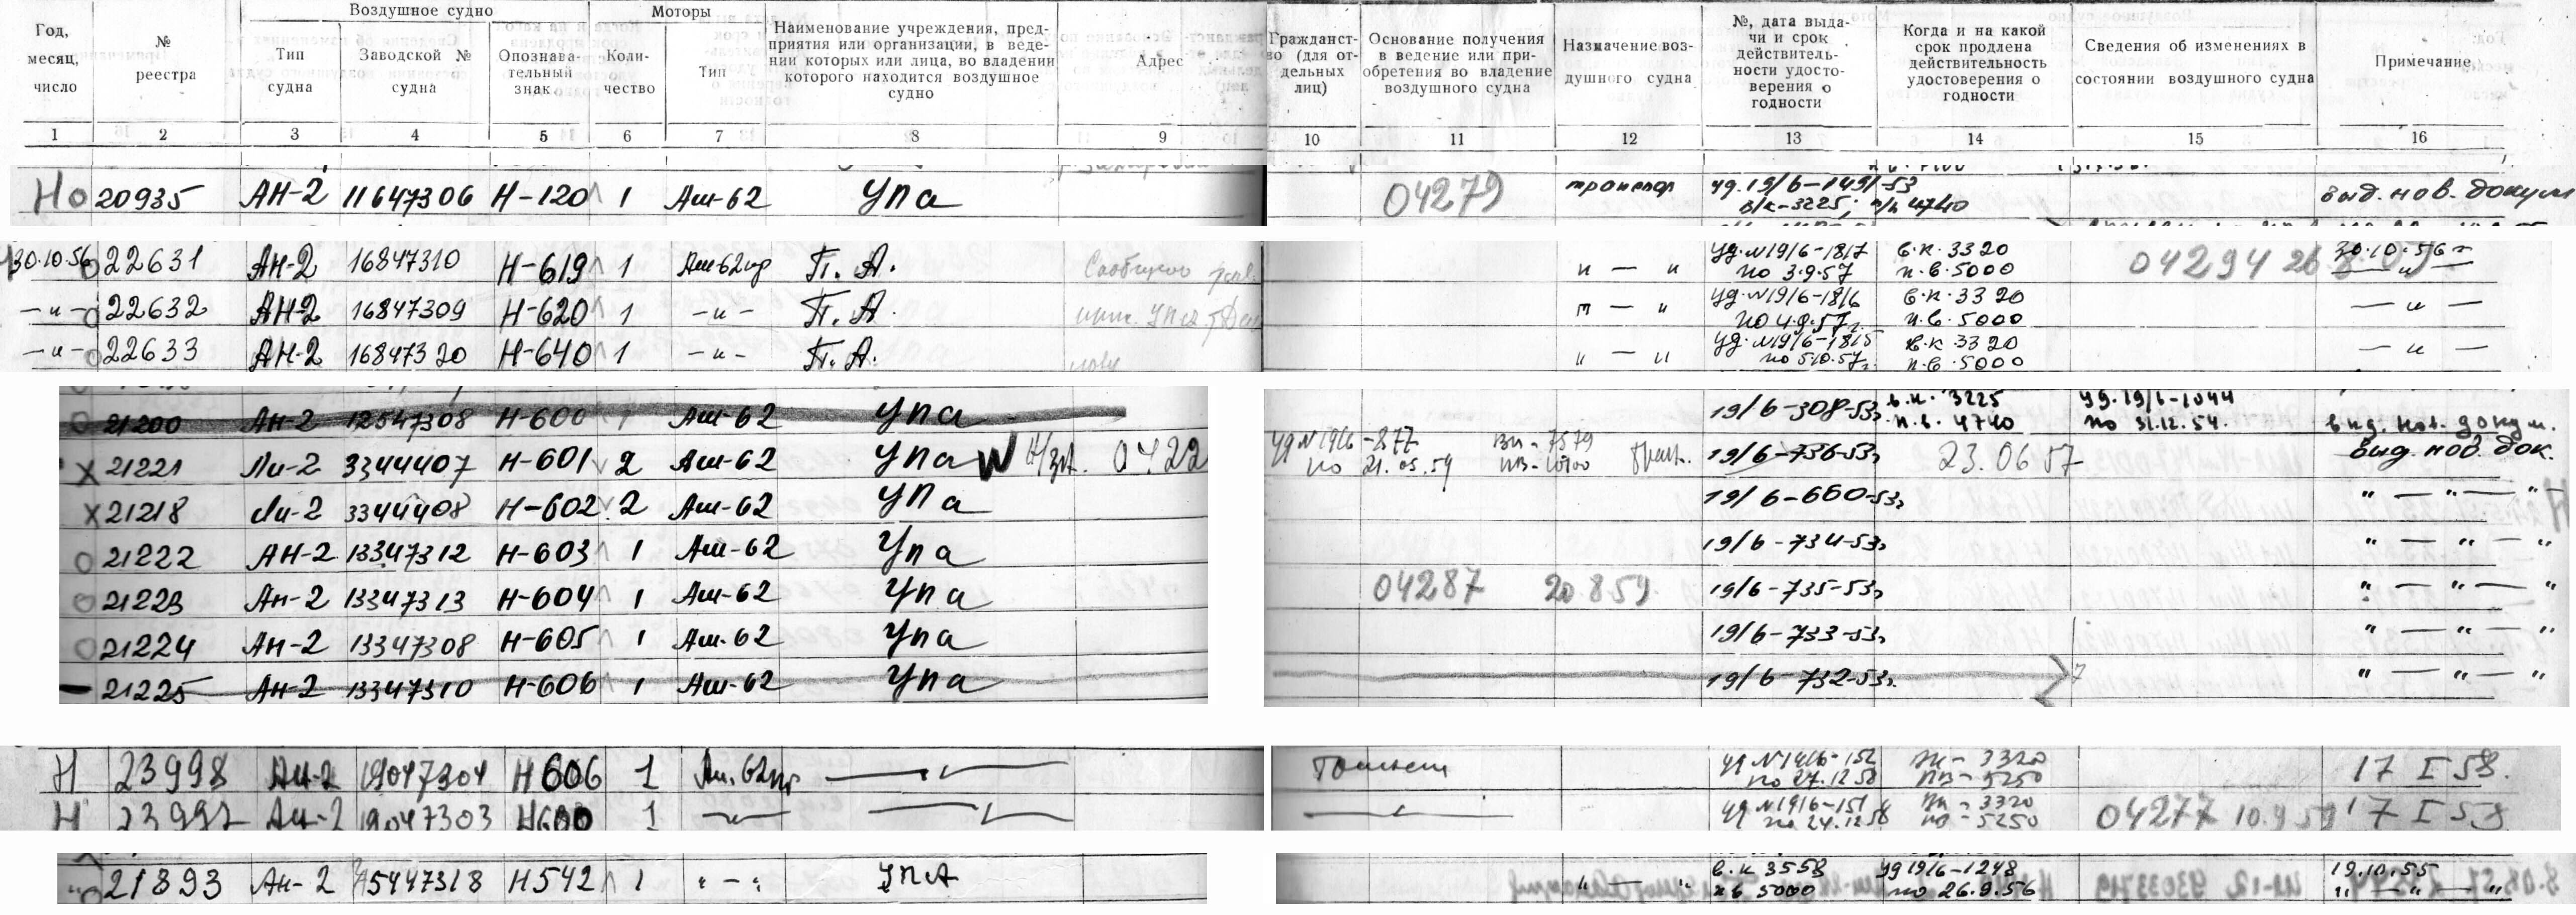 Год, месяц, число
№ реестра
Воздушное судно
Тип судна
Заводской № судна
Опознава-тельный знак
Моторы
Коли-чество
Тип
Наименование учреждения, пред-
приятия или организации, в веде-
нии которых или лица, во владении
которого находится воздушное
судно
Адрес
Гражданст-
во (для от-
дельных
лиц)
Основание получения
в ведение или при-
обретения во владение
воздушного судна
Назначение воз-
душного судна
№, дата выда-
чи и срок
действитель-
ности удосто-
верения о
годности
Когда и на какой
срок продлена
действительность
удостоверения о
годности
Сведения об изменениях в
состоянии воздушного судна
Примечание
1 2 3 4 5 6 7 8 9 10 11 12 13 14 15 16
Н о 20935 АН-2 11647306 Н-120 1 Аш-62 УПа 04279 транспор уд. 19/6-1491-53 выд. нов. докум
в/к-3225; п/в 4740
30.10.56 22631 Ан-2 16847310 Н-619 1 Аш-62ир П. А. и — и Уд. №19/6-1817 в.к. 3320 04294 30.10.56г
по 3.9.57 п.в. 5000 — и —
— и — 22632 АН-2 16847309 Н-620 1 — и — П. А. — и Уд. №19/6-1816 в.к. 3320 — и —
по 4.9.57г. п.в. 5000
— и — 22633 АН-2 16847320 Н-640 1 — и — П. А. и — и Уд. №19/6-1815 в.к 3320 — и —
по 5.10.57г. п.в. 5000
21200 Ан-2 12547308 Н-600 1 Аш-62 УПа 19/6-308-53г в.к. 3225 уд. 19/6-1044
п.в. 4740 по 31.12.54. выд. нов. докум.
х 21221 Ли-2 3344407 Н-601 2 Аш-62 УПа 0422 уд №19/6-877 вк-7579 19/6-736-53г 23.06 57 выд. нов. док.
по 21.05.59
х 21218 Ли-2 3344408 Н-602 2 Аш-62 УПа 19/6-660-53г " — " — "
21222 АН-2 13347312 Н-603 1 Аш-62 УПа 19/6-734-53г " — " — "
21223 Ан-2 13347313 Н-604 1 Аш-62 УПа 04287 20 8 59 19/6-735-53г " — " — "
21224 АН-2 13347308 Н-605 1 Аш-62 УПа 19/6-733-53г " — " — "
21225 Ан-2 13347310 Н-606 1 Аш-62 УПа 19/6-732-53г. 7 " — " — "
Н 23998 Ан-2 19047304 Н606 1 Аш.62ир уд №19/6-152 вк-3320 17 I 58.
по 27.12 58 пв-5250
Н 23997 Ан-2 19047303 Н600 1 уд №19/6-151 вк-3320 04277 10.9 59 17 I 58
по 24.12 58 пв-5250
21893 Ан-2 15447318 Н542 1 " — " УПА " — " в.к 3558 уд 19/6-1248 19.10.55
п.в 5000 по 26.9.56 " — " — "